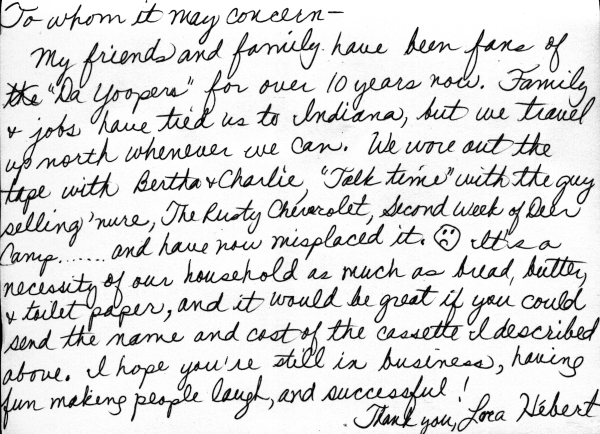 To whom it may concern—
My friends and family have been fans of
the "Da Yoopers" for over 10 years now. Family
& jobs have tied us to Indiana, but we travel
up north whenever we can. We wore out the
tape with Bertha & Charlie, "Talk time" with the guy
selling 'nure, The Rusty Chevrolet, Second Week of Deer
Camp....... and have now misplaced it. ☹ It's a
necessity of our household as much as bread, butter,
& toilet paper, and it would be great if you could
send the name and cost of the cassette I described
above. I hope you're still in business, having
fun making people laugh, and successful!
Thank you, Lora Hebert